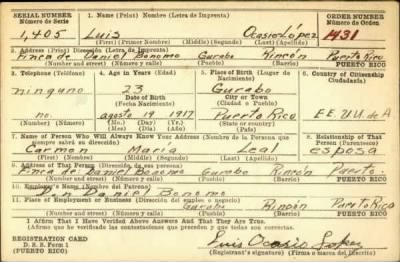 SERIAL NUMBER
Número de Serie
1. Name (Print) Nombre (Letra de Imprenta)
ORDER NUMBER
Número de Orden
1,405 Luis Ocasio López 1431
First (Primer Nombre) (Middle) (Segundo) Last (Apellido)
2. Address (Print) Dirección (Letra de Imprenta)
Finca de Daniel Bonomo Gurabo Rincón Puerto Rico
(Number and street) (Número y calle) (Town) (County) PUERTO RICO
3. Telephone (Teléfono)
4. Age in Years (Edad)
5. Place of Birth (Lugar de Nacimiento)
6. Country of Citizenship
Ciudadanía
ninguno 23 Gurabo
Date of Birth
(Fecha Nacimiento)
City or Town
(Ciudad o Pueblo)
no. agosto 19 1917 Puerto Rico EE. UU. de A
(Mo.) (Day) (Yr.)
(Mes) (Día) (Año)
(State or country)
(Estado o país)
7. Name of Person Who Will Always Know Your Address (Nombre de la Persona que siempre sabrá su dirección)
8. Relationship of That Person (Parentesco)
Carmen María Leal esposa
First (Primer Nombre) Middle (Segundo) Last (Apellido)
9. Address of That Person (Dirección de esa persona)
Finca de Daniel Bonomo Gurabo Rincón Puerto.
(Number and street) (Número y calle) (Town) (County) PUERTO RICO
10. Employer's Name (Nombre del Patrono)
Don Daniel Bonomo
11. Place of Employment or Business (Dirección del empleo o negocio)
Gurabo Rincón Puerto Rico
(Number and street) (Número y calle) (Town) (County) PUERTO RICO
I Affirm That I Have Verified Above Answers And That They Are True.
REGISTRATION CARD
D. S. S. Form 1
Luis Ocasio López
(Registrant's signature) (Firma o marca del Inscrito)